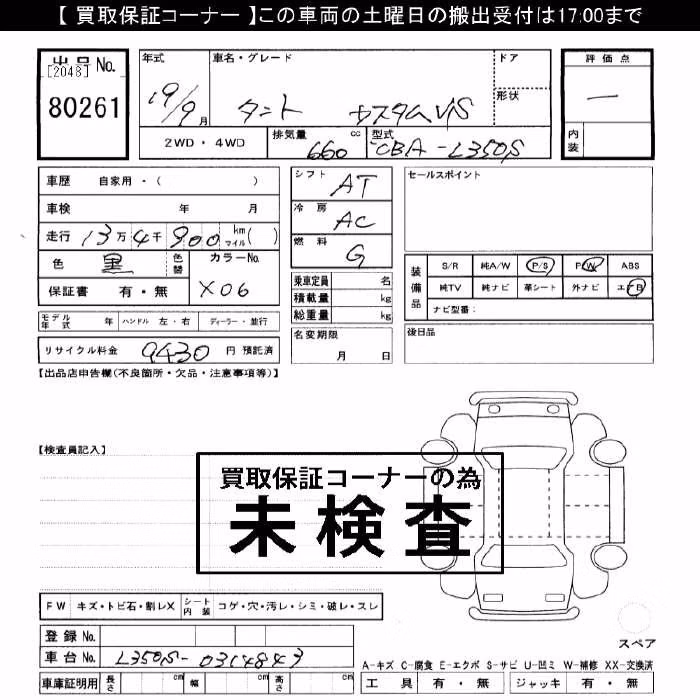 【 買取保証コーナー 】この車両の土曜日の搬出受付は17:00まで
出品 No.
[2048]
80261
年式
19/9月
車名・グレード
タント カスタムVS
ドア
形状
評価点
一
内装
2WD・4WD
排気量 660 cc
型式 CBA-L350S
車歴 自家用・( )
車検 年 月
走行 13万4千900 km マイル( )
色 黒 色替 カラーNo. X06
保証書 有・無
モデル年式 年 ハンドル 左・右 ディーラー・並行
リサイクル料金 9430 円 預託済
シフト AT
冷房 AC
燃料 G
乗車定員 名
積載量 kg
総重量 kg
名変期限
月 日
セールスポイント
装備品
S/R 純A/W P/S P/W ABS
純TV 純ナビ 革シート 外ナビ エアB
ナビ型番:
後日品
【出品店申告欄(不良箇所・欠品・注意事項等)】
【検査員記入】
買取保証コーナーの為
未検査
FW キズ・トビ石・割レX シート内装 コゲ・穴・汚レ・シミ・破レ・スレ
スペア
登録 No.
車台 No. L350S-
A-キズ C-腐食 E-エクボ S-サビ U-凹ミ W-補修 XX-交換済
車庫証明用 長さ cm 幅 cm 高さ cm
工具 有・無 ジャッキ 有・無